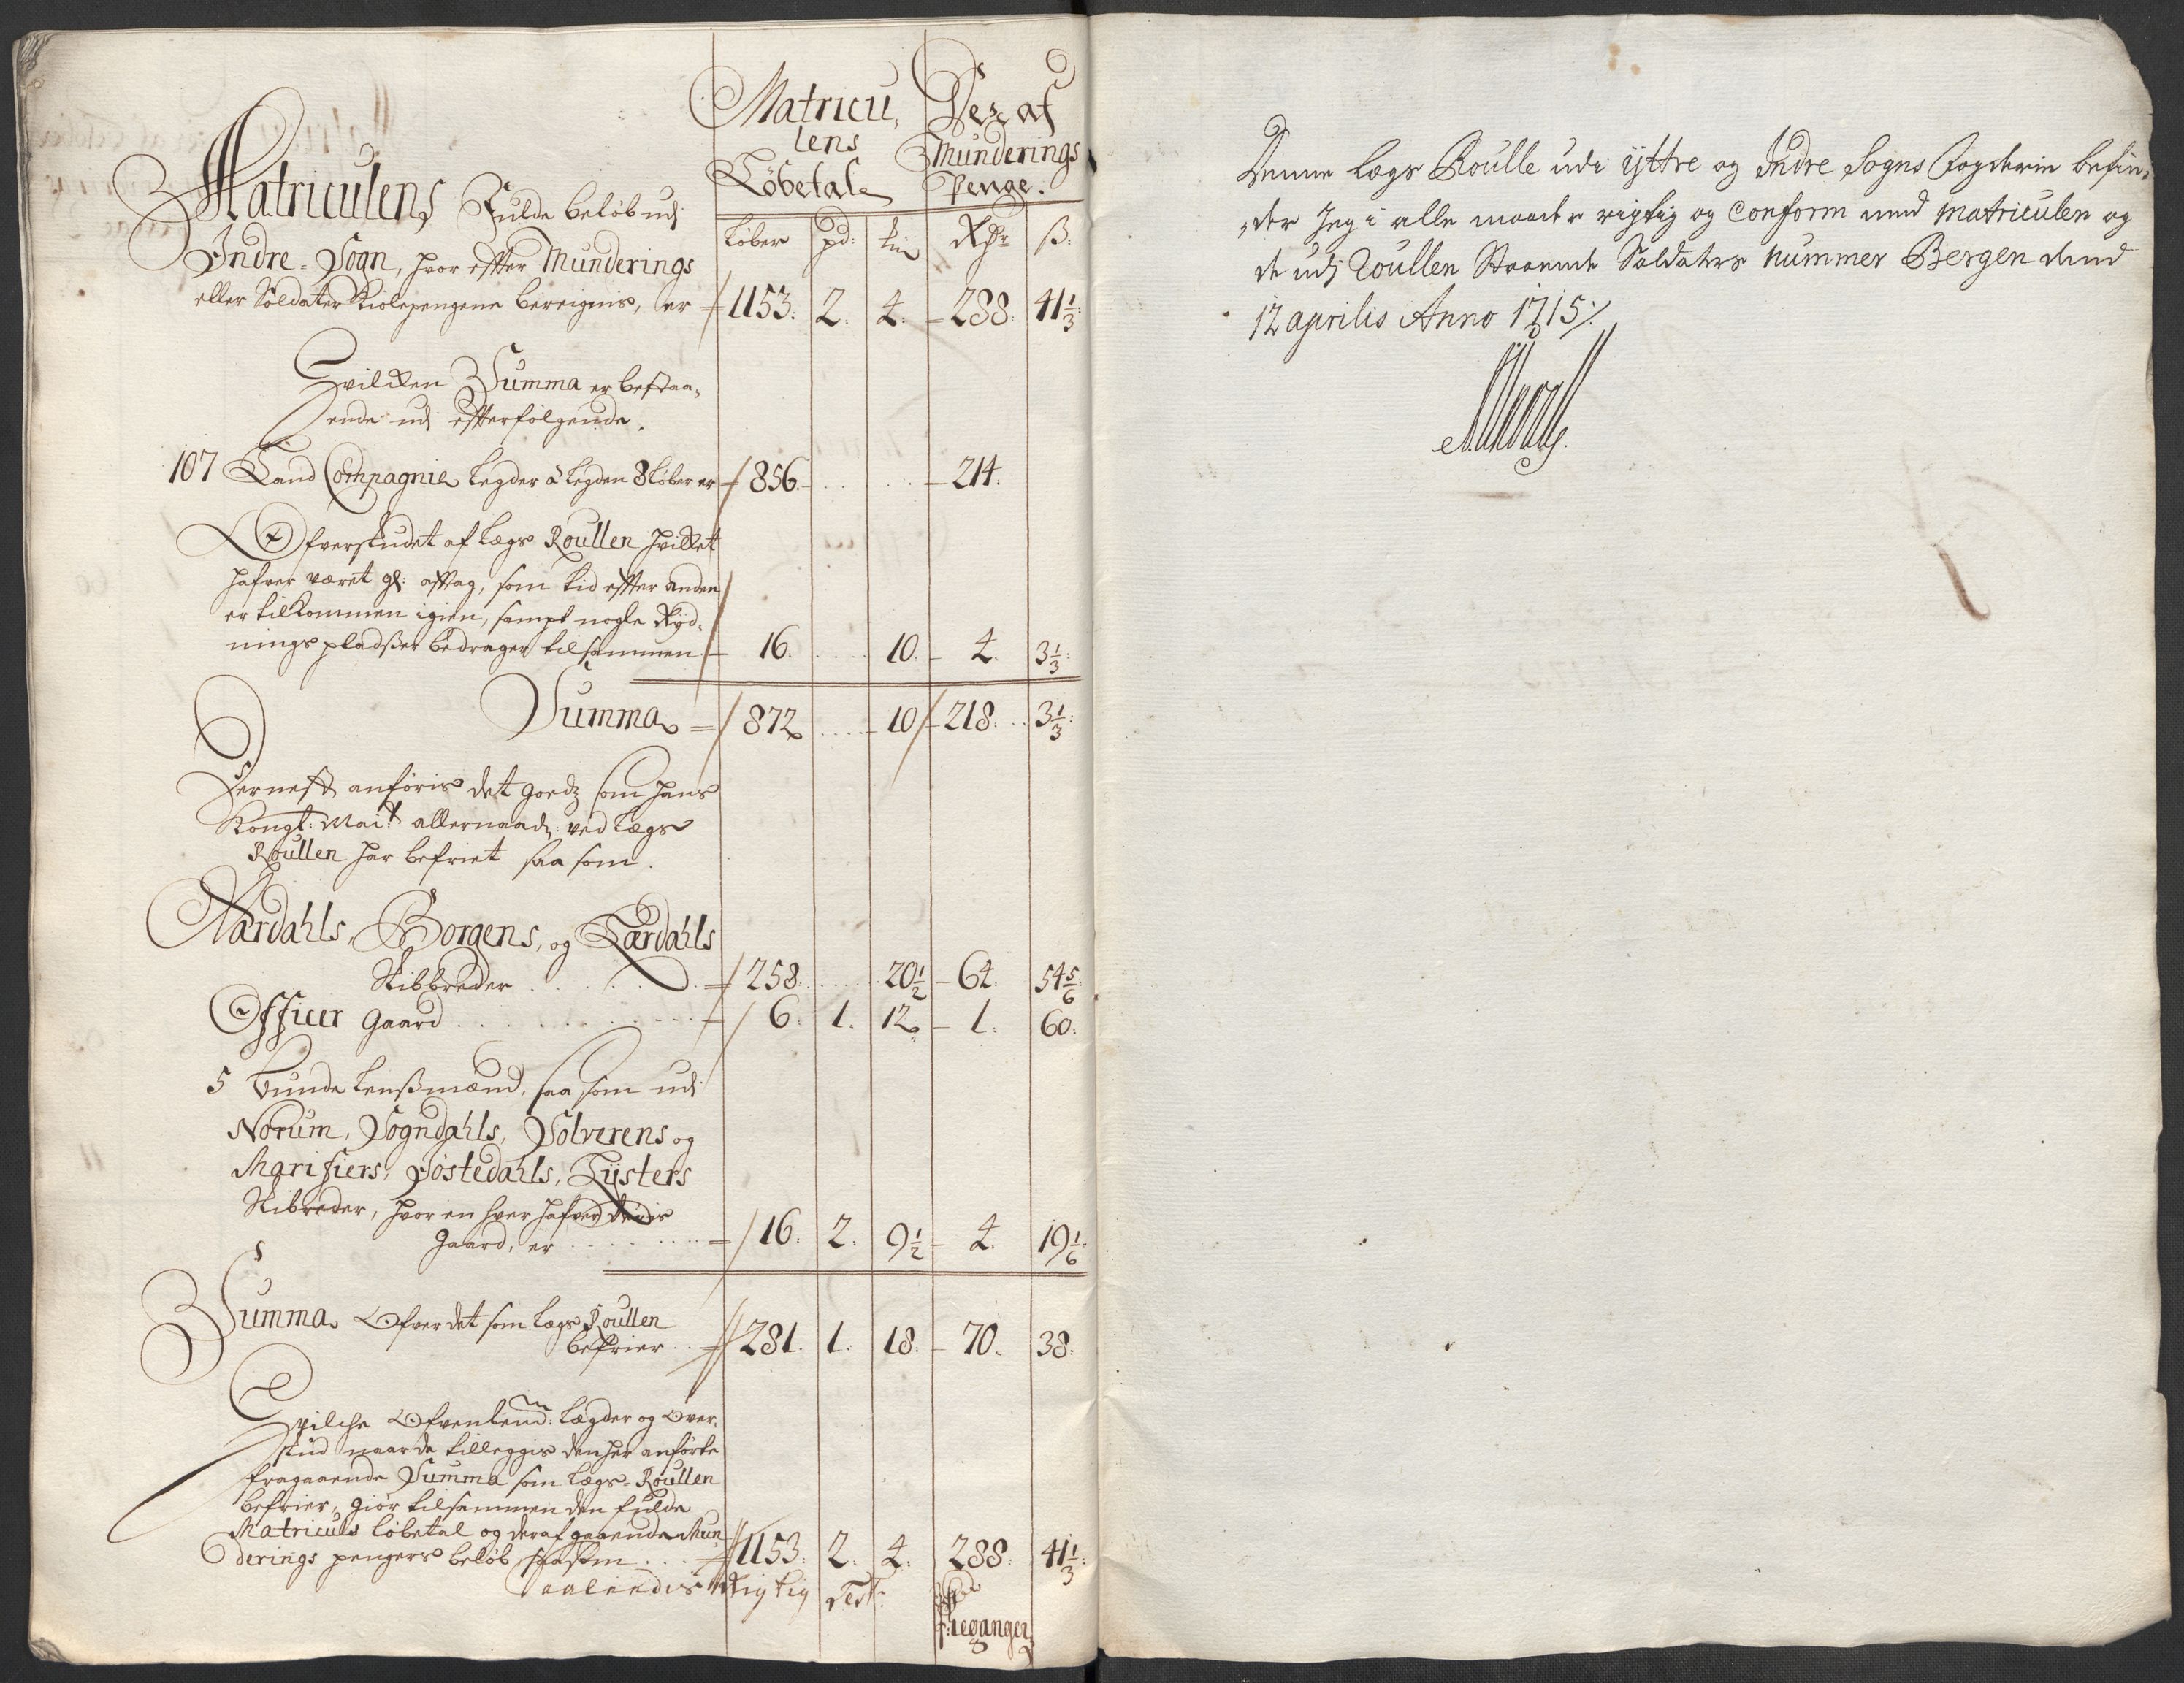 Matricu, Der af
lens Munderings
Løbetal Penge.
Løber pd: Rdr ß:
Matriculens Fulde beløb udj
Indre-Sogn, hvor effter Munderings
eller Soldater Kiolepengene bereignis, er 1153. 2. 4. 288. 41 1/3:
Hvilcken Summa er bestaa,
ende udj effterfølgende.
107 Land Compagnie Legder â Legden 8 Løber er 856. 214.
Ofverskudet af Lægs Roullen hvilket
hafver været gl: afftag, som tid effter anden
er tilkommen igien, sampt nogle Ryd,
nings pladsser bedrager tilsammen 16. 10. 4. 3 1/3:
Summa 872 10 218. 3 1/3:
Dernest anføris det goedz som hans
Kongl: Mait allernaad: ved Lægs
Roullen har befriet saa som.
Aardahls, Borgens, og Lærdahls
Skibbreder 258. 20 1/2 64. 54 5/6:
Officer Gaard 6. 1. 12. 1. 60.
5 Bunde Lenßmænd, saa som udj
Norum, Sogndahls, Solverens og
Marifiers, Jostedahls, Lysters
Skibreder, hvor en hver hafver deris
Gaard, er 16. 2. 9 1/2 4. 19 1/6:
Summa Ofver det som Lægs Roullen
befrier 281. 1. 18. 70. 38.
Hvilche Ofvenbend: Lægder og Over,
skud naar de tilleggis den her anførte
fragaaende Summa som Lægs-Roullen
befrier, giør tilsammen den fulde
Matriculs Løbetal og deraf gaaende Mun,
derings pengers beløb, saasom 1153. 2. 4. 288. 41 1/3:
Rigtig Test:
Denne Lægs Roulle udi yttre og Indre Sogns Fogderie befin,
der Jeg i alle maader rigtig og Conform med Matriculen og
de udj Roullen Staaende Soldaters Nummer Bergen dend
12 aprilis Anno 1715